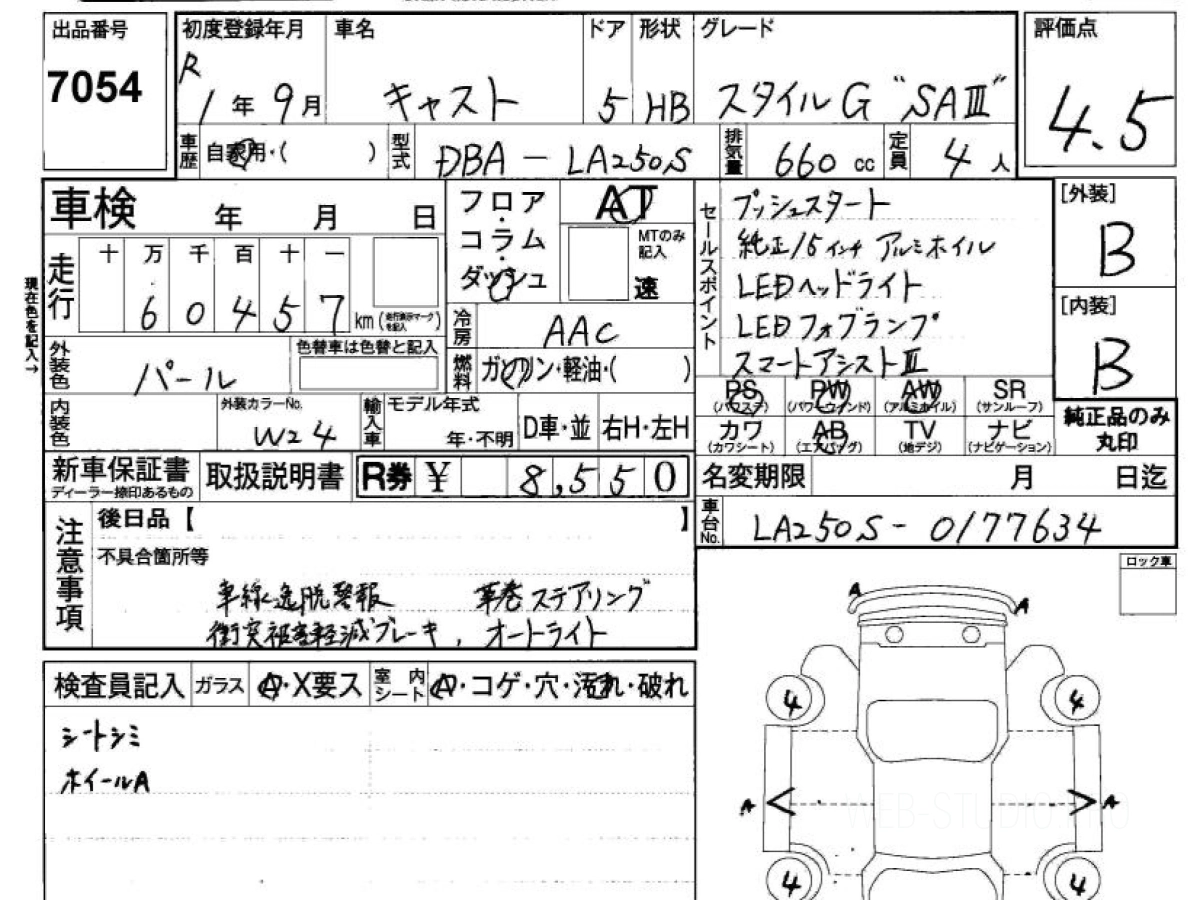 出品番号
7054
初度登録年月
R
1年 9月
車名
キャスト
ドア
5
形状
HB
グレード
スタイルG “SAⅢ”
評価点
4.5
車歴
自家用・( )
型式
DBA - LA250S
排気量
660 cc
定員
4人
車検 年 月 日
走行
十 万 千 百 十 一
6 0 4 5 7 km
(走行表示マークを記入)
現在色を記入→
外装色
パール
色替車は色替と記入
内装色
外装カラーNo.
W24
輸入車
モデル年式
年・不明
D車・並
右H・左H
フロア・コラム・ダッシュ
AT
MTのみ記入
速
冷房
AAC
燃料
ガソリン・軽油・( )
セールスポイント
プッシュスタート
純正15インチ アルミホイル
LEDヘッドライト
LEDフォグランプ
スマートアシストⅢ
[外装]
B
[内装]
B
PS
(パワステ)
PW
(パワーウィンド)
AW
(アルミホイル)
SR
(サンルーフ)
カワ
(カワシート)
AB
(エアバッグ)
TV
(地デジ)
ナビ
(ナビゲーション)
純正品のみ
丸印
新車保証書
ディーラー捺印あるもの
取扱説明書
R券 ¥ 8,550
名変期限 月 日迄
車台No.
LA250S - 0177634
注意事項
後日品【 】
不具合箇所等
車線逸脱警報 革巻ステアリング
衝突被害軽減ブレーキ, オートライト
ロック車
検査員記入
ガラス
A・X要ス
室内シート
A・コゲ・穴・汚れ・破れ
シートシミ
ホイールA
A
A
4
4
A
A
4
4
WEB-STUDIO.PRO